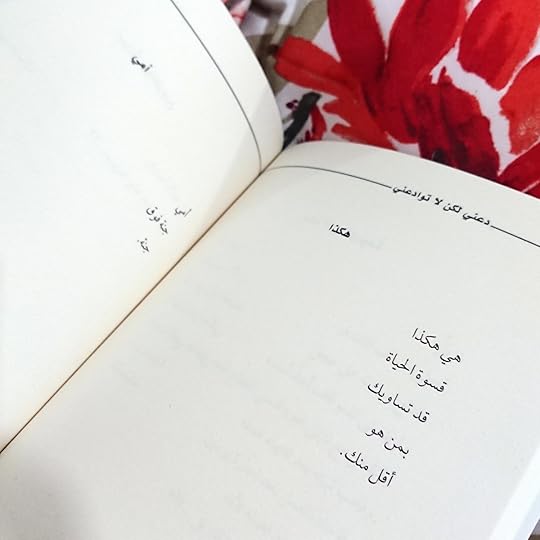 دعني لكن لا توادعني
هكذا
هي هكذا
قسوة الحياة
قد تساويك
بمن هو
أقل منك.
أمي
أمي
جنة فوق
جنة